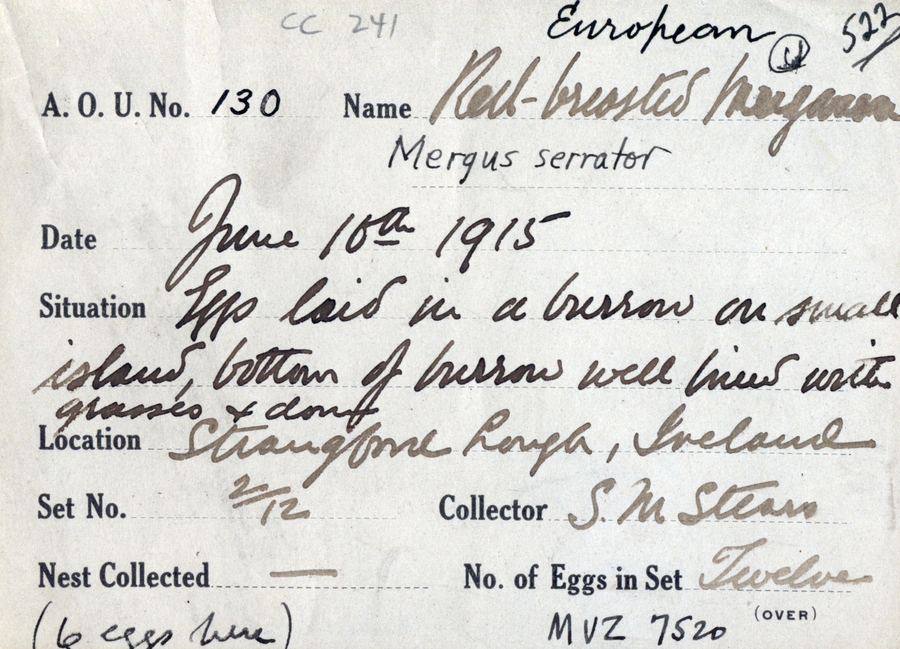 CC 241
European
522
A. O. U. No. 130 Name Red-breasted Merganser
Mergus serrator
Date June 10th 1915
Situation Eggs laid in a burrow on small
island, bottom of burrow well lined with
grasses & down
Location Strangford Lough, Ireland
Set No. 2/12 Collector S. M Stears
Nest Collected — No. of Eggs in Set Twelve
(OVER)
(6 eggs here) MVZ 7520